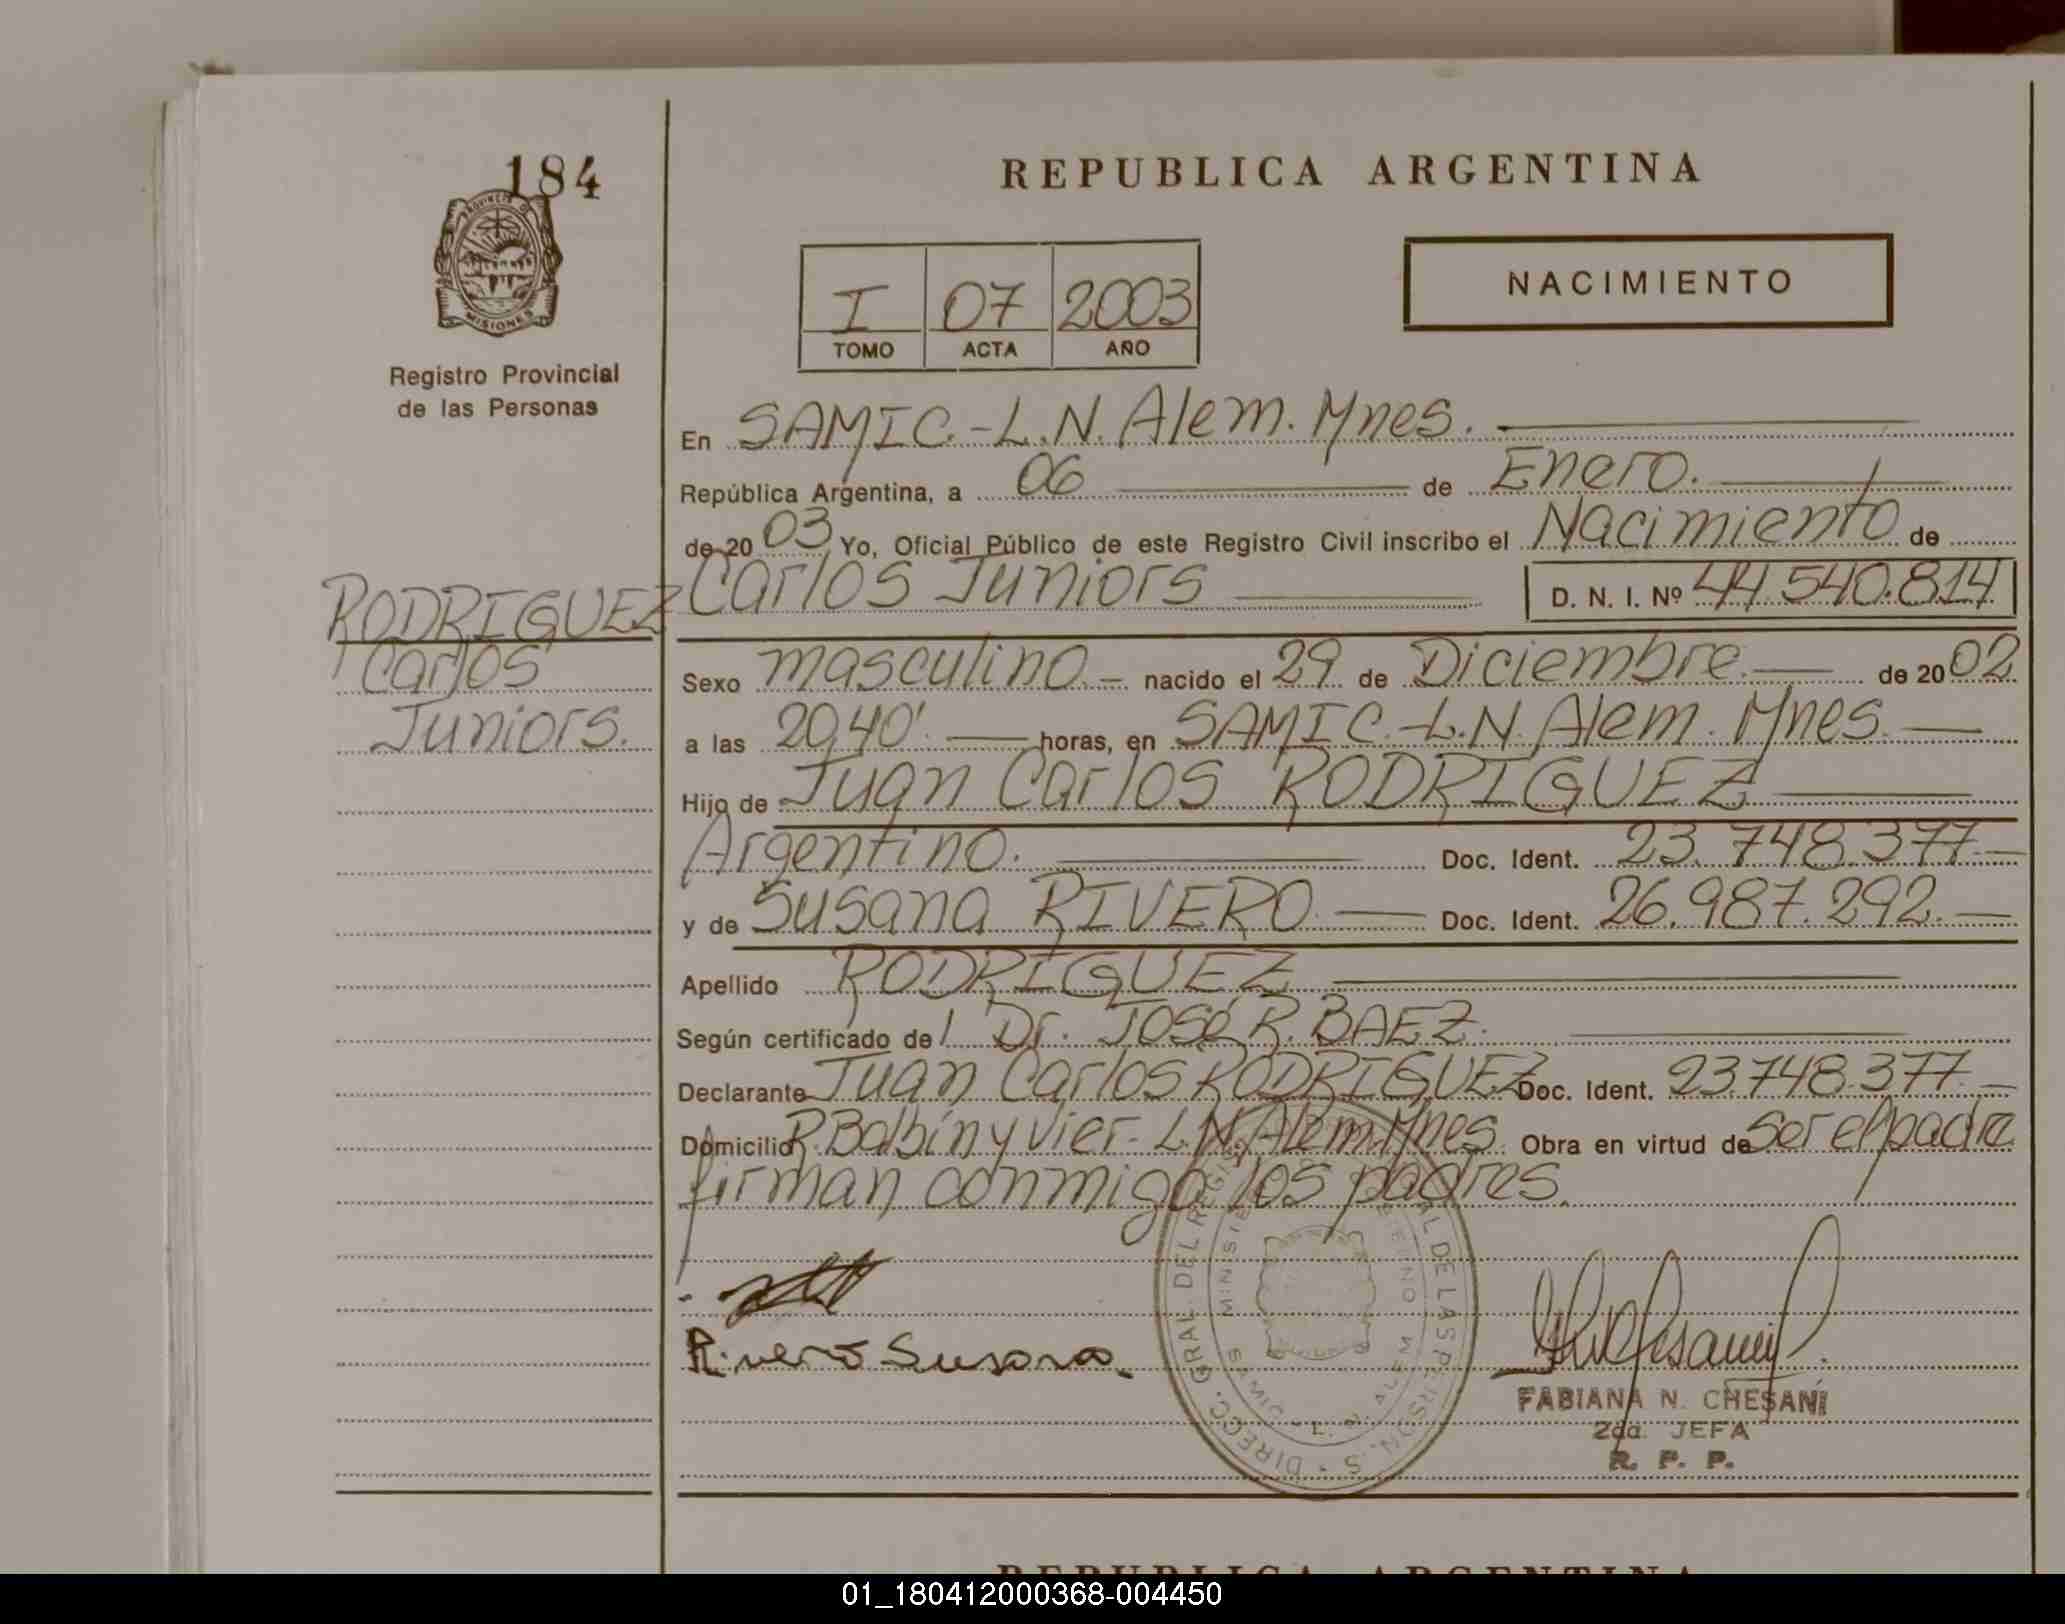 184
PROVINCIA DE
MISIONES
Registro Provincial
de las Personas
RODRIGUEZ
Carlos
Juniors.
REPUBLICA ARGENTINA
I 07 2003
TOMO ACTA AÑO
NACIMIENTO
En SAMIC.-L.N. Alem. Mnes.
República Argentina, a 06 de Enero.
de 2003 Yo, Oficial Público de este Registro Civil inscribo el Nacimiento de
Carlos Juniors D. N. I. Nº 44.540.814
Sexo masculino.- nacido el 29 de Diciembre.- de 2002
a las 20,40'. horas, en SAMIC.-L.N. Alem. Mnes.
Hijo de Juan Carlos RODRIGUEZ
Argentino. Doc. Ident. 23.748.377.-
y de Susana RIVERO.- Doc. Ident. 26.987.292.-
Apellido RODRIGUEZ
Según certificado de Dr. José R. BAEZ.
Declarante Juan Carlos RODRIGUEZ Doc. Ident. 23.748.377.-
Domicilio R. Balbín y Vier.- L.N. Alem. Mnes. Obra en virtud de ser el padre
firman conmigo los padres.
Rivero Susana
DIRECC. GRAL. DEL
SAMIC - L. N. ALEM
FABIANA N. CHESANI
2da. JEFA
R. P. P.
REPUBLICA ARGENTINA
01_180412000368-004450